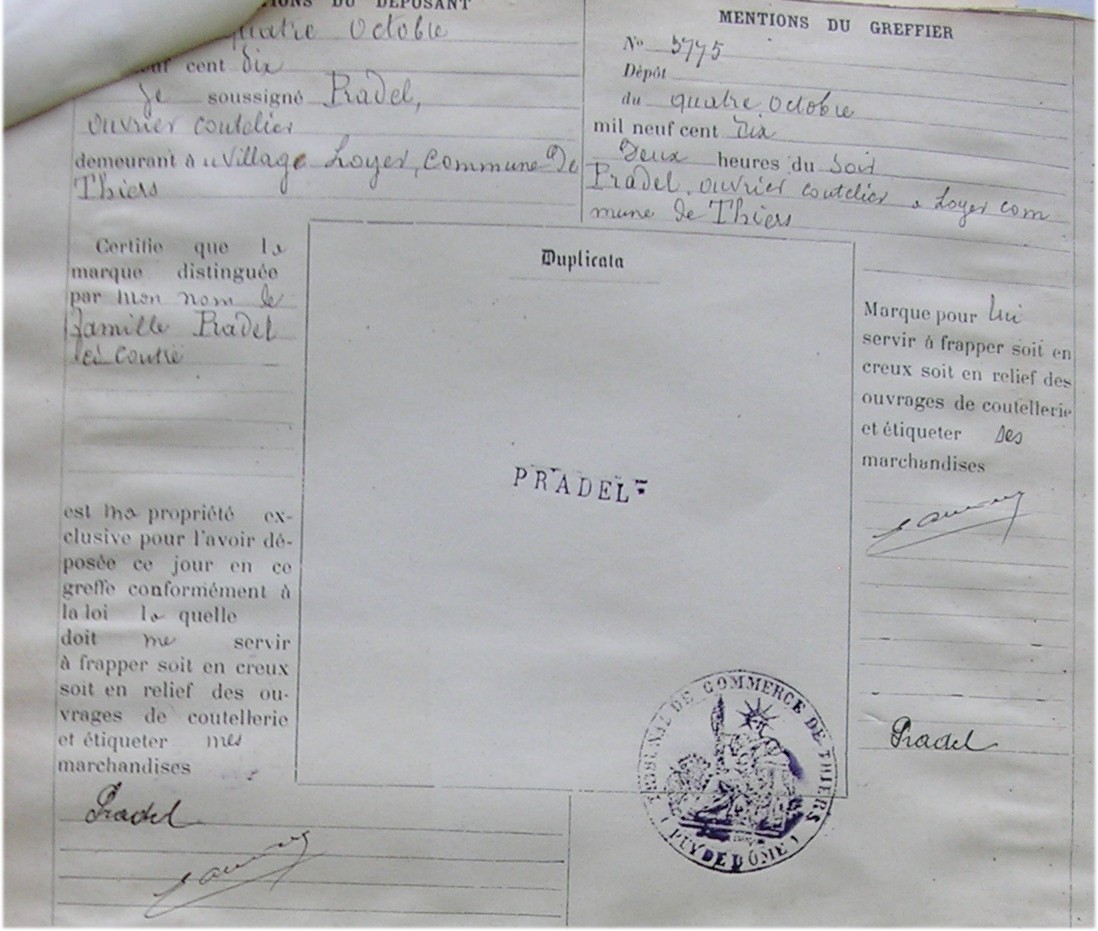 MENTIONS DU DÉPOSANT
quatre Octobre
neuf cent dix
Je soussigné Pradel,
ouvrier coutelier
demeurant à u Village Loyer, Commune de
Thiers
MENTIONS DU GREFFIER
N° 5775
Dépôt
du quatre octobre
mil neuf cent dix
Deux heures du Soir
Pradel, ouvrier coutelier a Loyer com
mune de Thiers
Certifie que la
marque distinguée
par mon nom de
famille Pradel
est ma propriété ex-
clusive pour l'avoir dé-
posée ce jour en ce
greffe conformément à
la loi la quelle
doit me servir
à frapper soit en creux
soit en relief des ou-
vrages de coutellerie
et étiqueter mes
marchandises
Pradel
Duplicata
PRADEL
TRIBUNAL DE COMMERCE DE THIERS
(PUY DE DÔME)
Marque pour lui
servir à frapper soit en
creux soit en relief des
ouvrages de coutellerie
et étiqueter ses
marchandises
Pradel